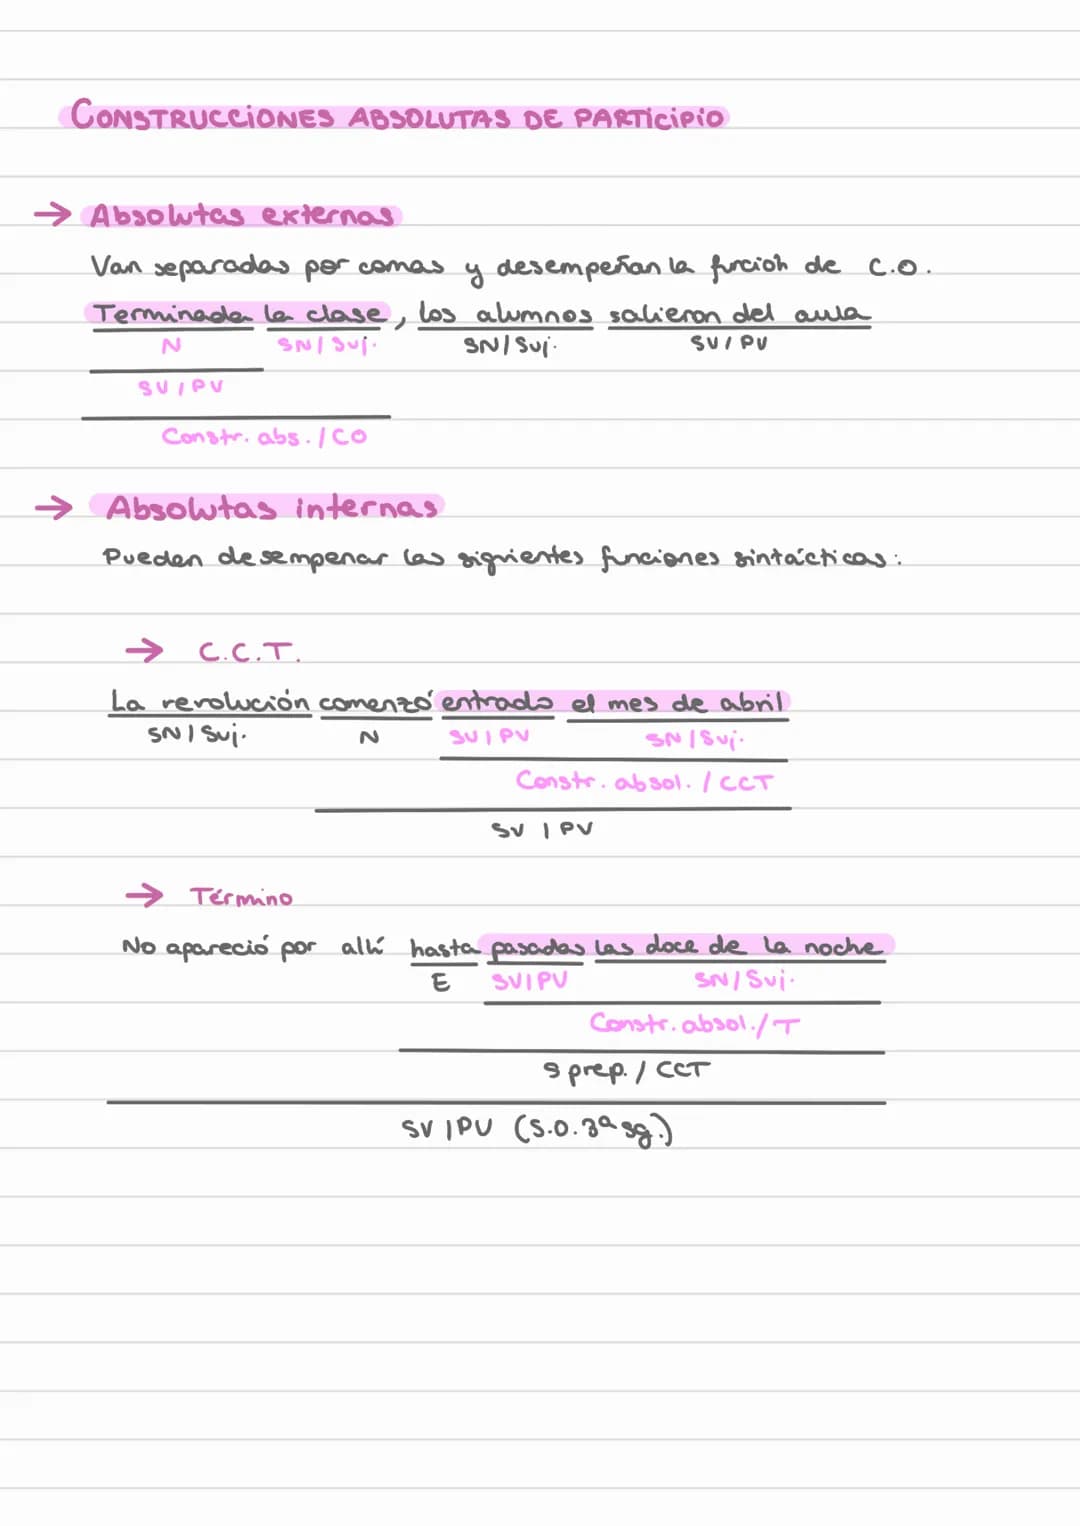 CONSTRUCCIONES ABSOLUTAS DE PARTICIPIO
→ Absolutas externas
Van separadas por comas y desempeñan la función de C.O.
Terminada la clase, los alumnos salieron del aula
N SN/Suj. SN/Suj. SV/PV
SV/PV
Constr. abs./CO
→ Absolutas internas
Pueden desempenar las siguientes funciones sintácticas:
→ C.C.T.
La revolución comenzó entrado el mes de abril
SN/Suj. N SV/PV SN/Suj.
Constr. absol. / CCT
SV / PV
→ Término
No apareció por allí hasta pasadas las doce de la noche
E SV/PV SN/Suj.
Constr. absol./T
S prep. / CCT
SV/PV (S.O. 3ª sg.)